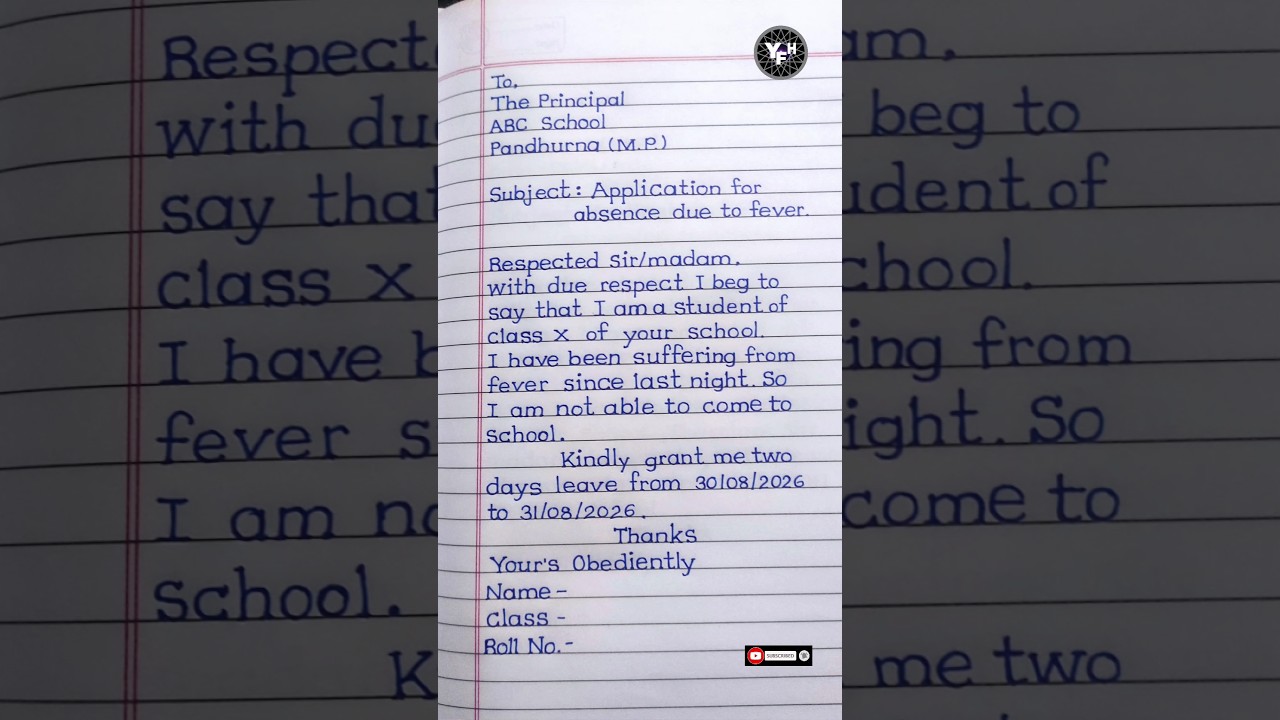 To,
The Principal
ABC School
Pandhurna (M.P)
Subject: Application for
absence due to fever.
Respected sir/madam,
with due respect I beg to
say that I am a student of
class X of your school.
I have been suffering from
fever since last night. So
I am not able to come to
school.
Kindly grant me two
days leave from 30/08/2026
to 31/08/2026.
Thanks
Your's Obediently
Name -
Class -
Roll No. -
YFH
SUBSCRIBED